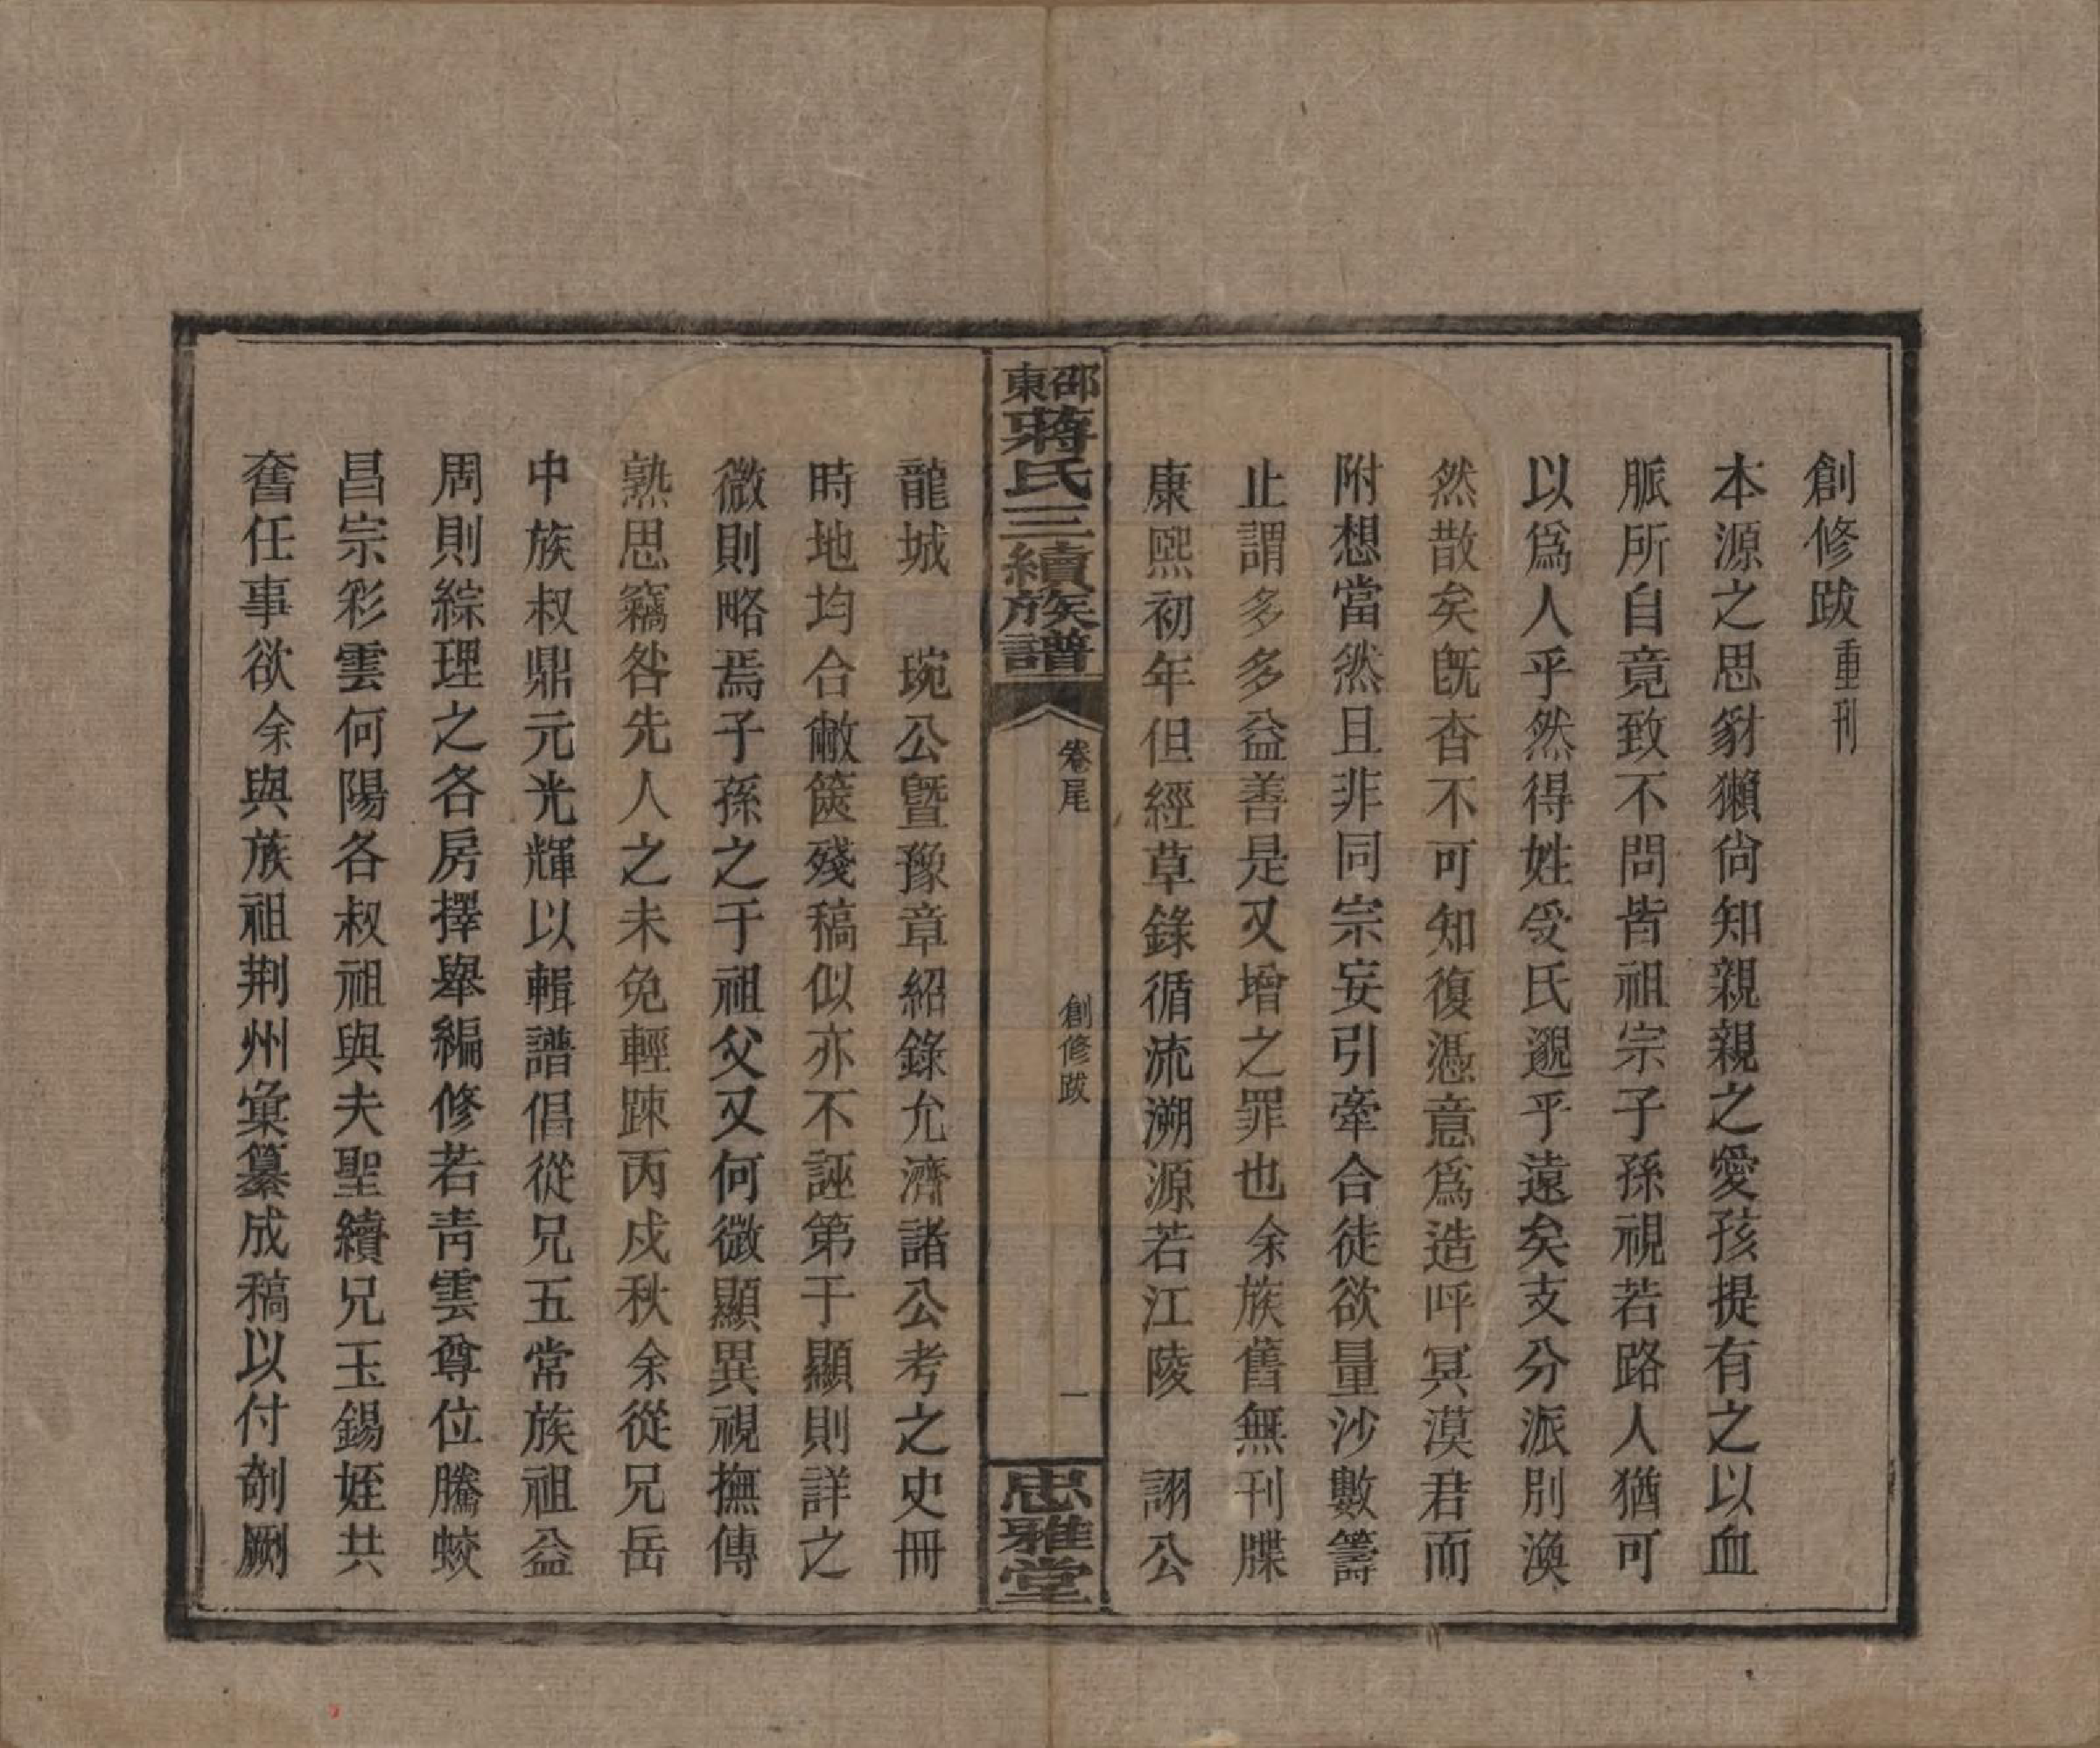 創修跋 重刊
本源之思豺獺尙知親親之愛孩提有之以血
脈所自竟致不問皆祖宗子孫視若路人猶可
以爲人乎然得姓受氏邈乎遠矣支分派別渙
然散矣旣杳不可知復憑意爲造呼冥漠君而
附想當然且非同宗妄引牽合徒欲量沙數籌
止謂多多益善是又增之罪也余族舊無刊牒
康熙初年但經草錄循流溯源若江陵 詡公
邵東蔣氏三續族譜
卷尾
創修跋
一
忠雅堂
龍城 琬公暨豫章紹錄允濟諸公考之史冊
時地均合敝篋殘稿似亦不誣第于顯則詳之
微則略焉子孫之于祖父又何微顯異視撫傳
熟思竊咎先人之未免輕踈丙戍秋余從兄岳
中族叔鼎元光輝以輯譜倡從兄五常族祖益
周則綜理之各房擇舉編修若靑雲尊位騰蛟
昌宗彩雲何陽各叔祖與夫聖續兄玉錫姪共
奮任事欲余與族祖荆州彙纂成稿以付剞劂